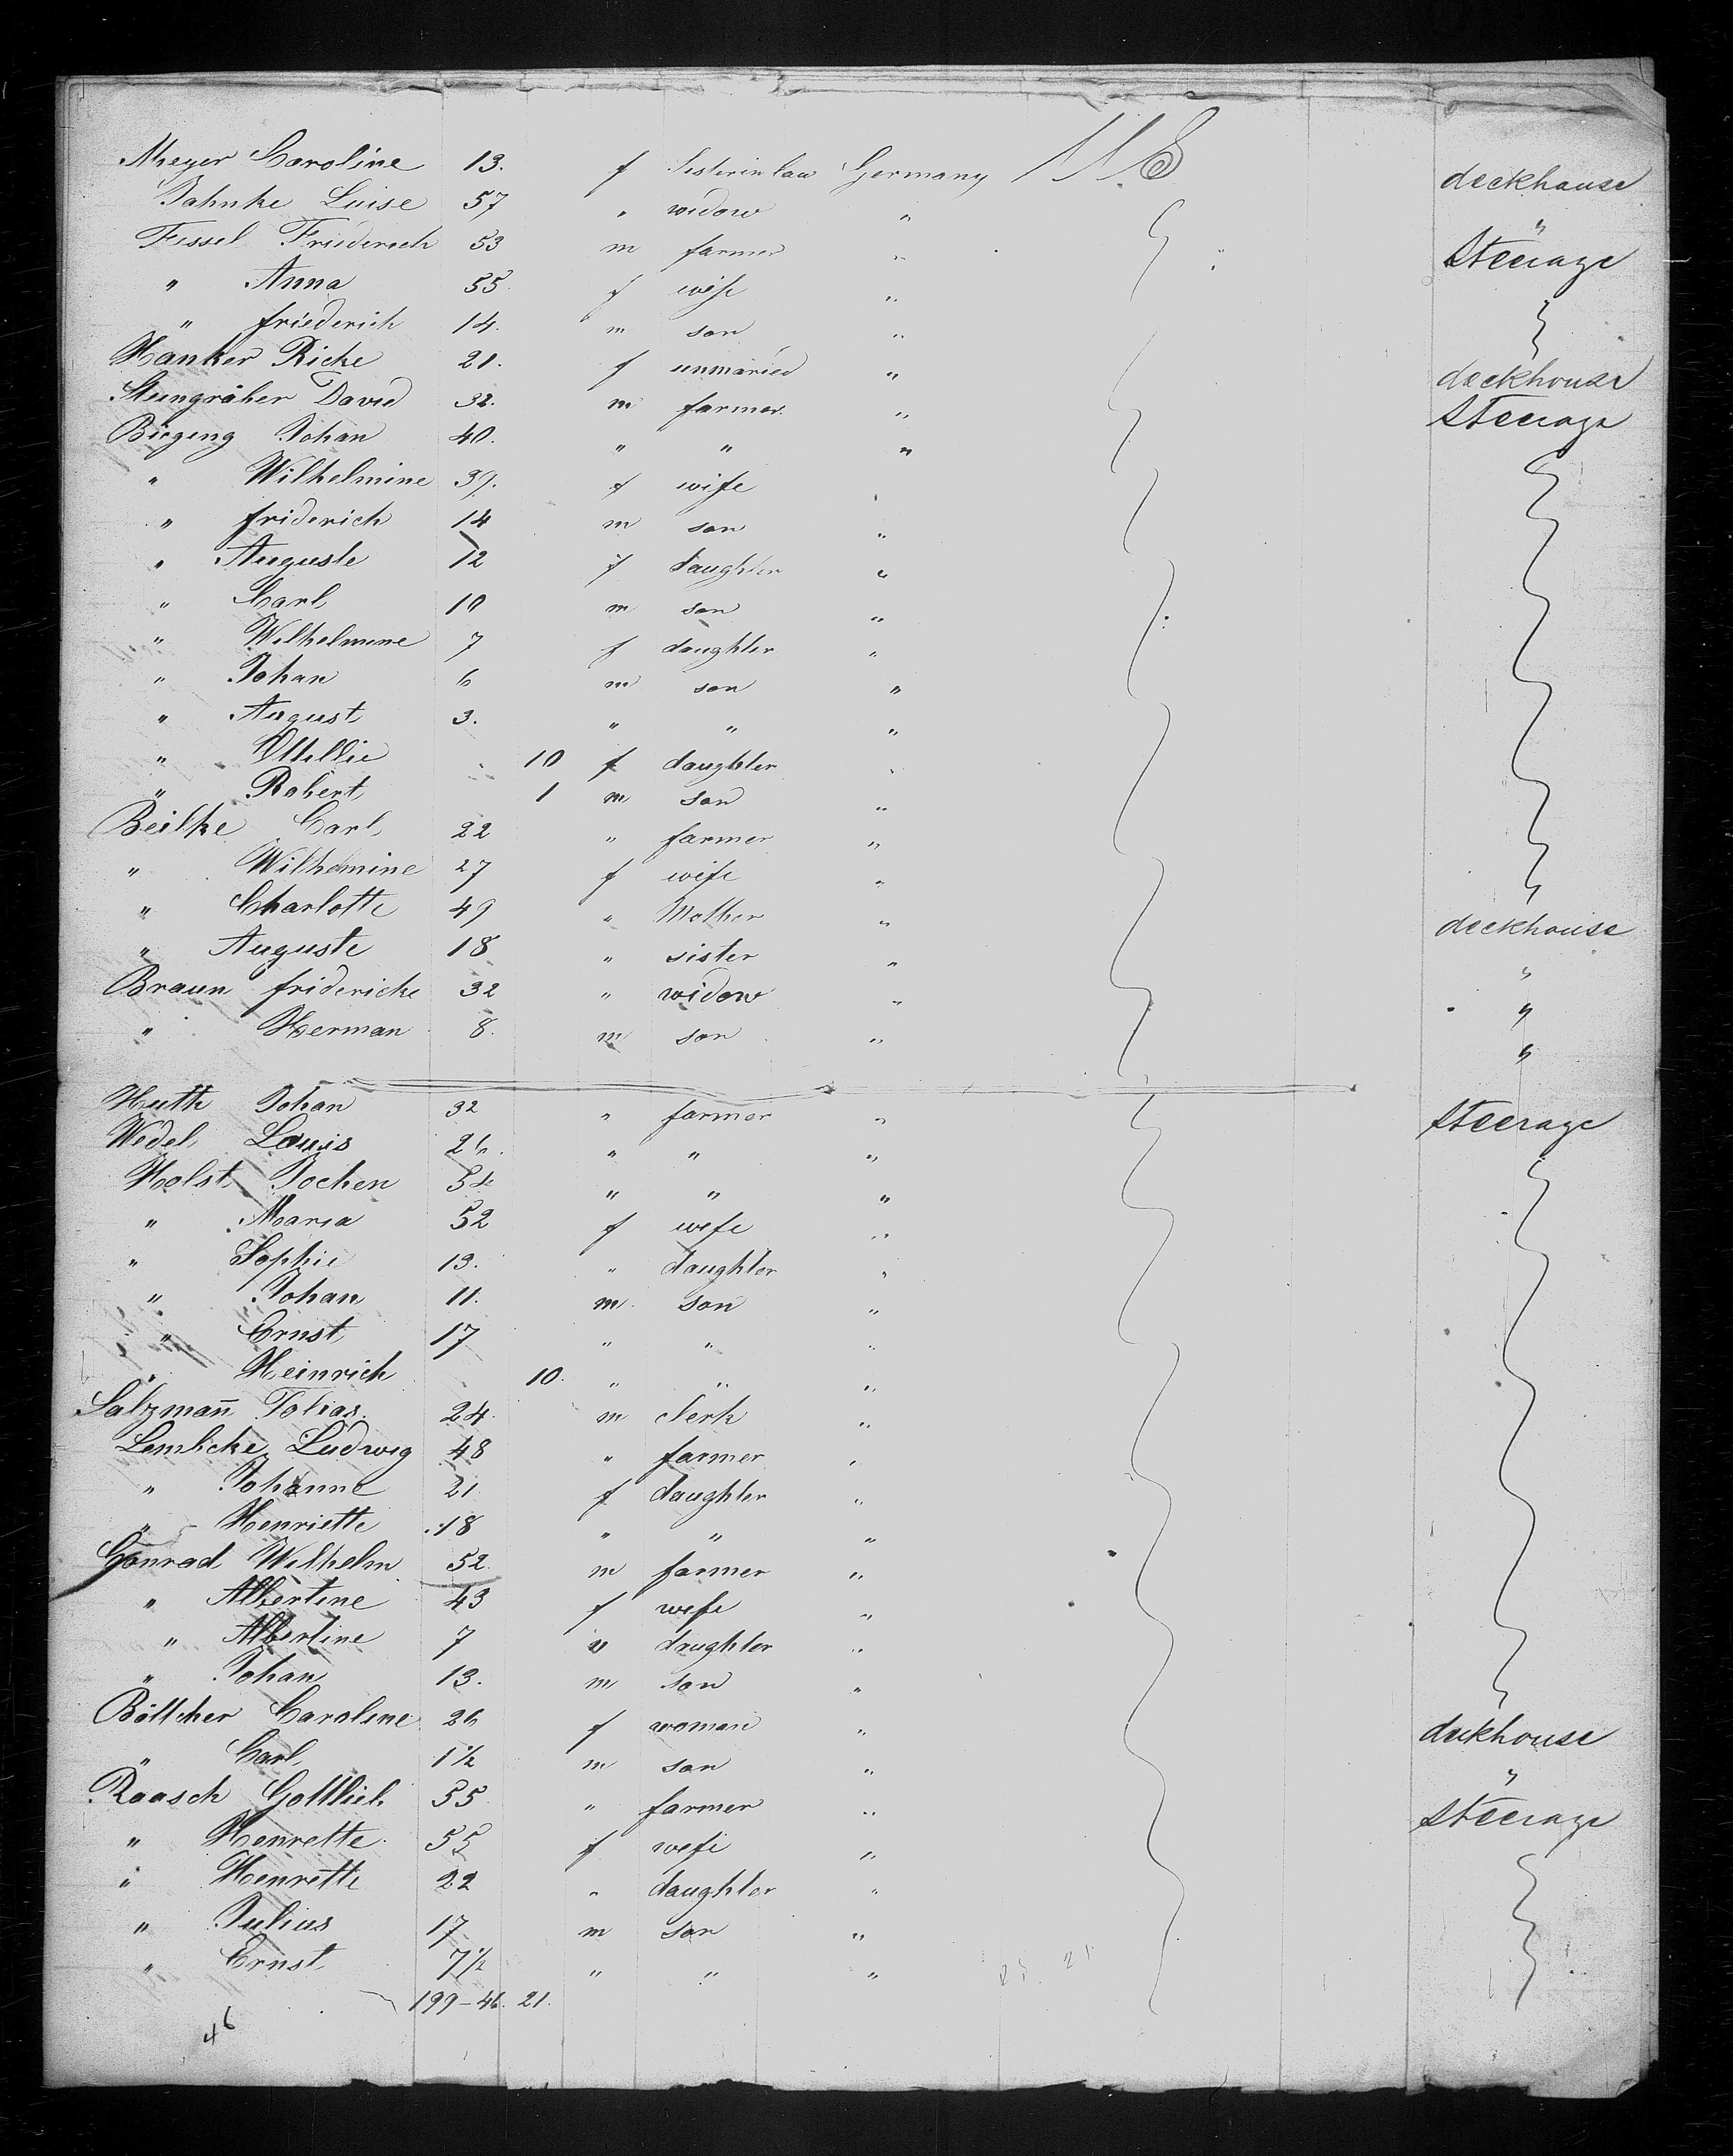 Meyer Caroline 13. f Sister in law Germany U.S. deckhouse
Jahnke Luise 57 " widow " "
Fissel Friederich 53 m farmer " Steerage
" Anna 55 f wife "
" friederich 14. m son "
Hanker Ricke 21. f unmaried " deckhouse
Steingräber David 32. m farmer " Steerage
Biegeng Johan 40. " " "
" Wilhelmine 39. f wife "
" friderich 14 m son "
" Auguste 12 f daughter "
" Carl 10 m son "
" Wilhelmine 7 f daughter "
" Johan 6 m son "
" August 3. " " "
" Ottillie 10 f daughter "
" Robert 1 m son "
Beilke Carl 22 " farmer "
" Wilhelmine 27 f wife "
" Charlotte 49 " Mother " deckhouse
" Auguste 18 " sister " "
Braun fridericke 32 " widow " "
" Herman 8. m son " "
Huth Johan 32 " farmer " Steerage
Wedel Louis 26. " " "
Holst Jochen 54 " " "
" Maria 52 f wife "
" Sophie 13. " daughter "
" Johan 11. m son "
" Ernst 17 " " "
" Heinrich 10. " " "
Salzmañ Tobias 24. m clerk "
Lembcke Ludwig 48 " farmer "
" Johanne 21 f daughter "
" Henriette 18 " " "
Gonrad Wilhelm 52. m farmer "
" Albertine 43 f wife "
" Albertine 7 " daughter "
" Johan 13. m son "
Böttcher Caroline 26 f woman " deckhouse
" Carl 1 1/2 m son " "
Raasch Gottlieb 55 " farmer " Steerage
" Henrette 55 f wife "
" Henrette 22 " daughter "
" Julius 17 m son "
" Ernst 7 1/2 " " "
199-46. 21.
46